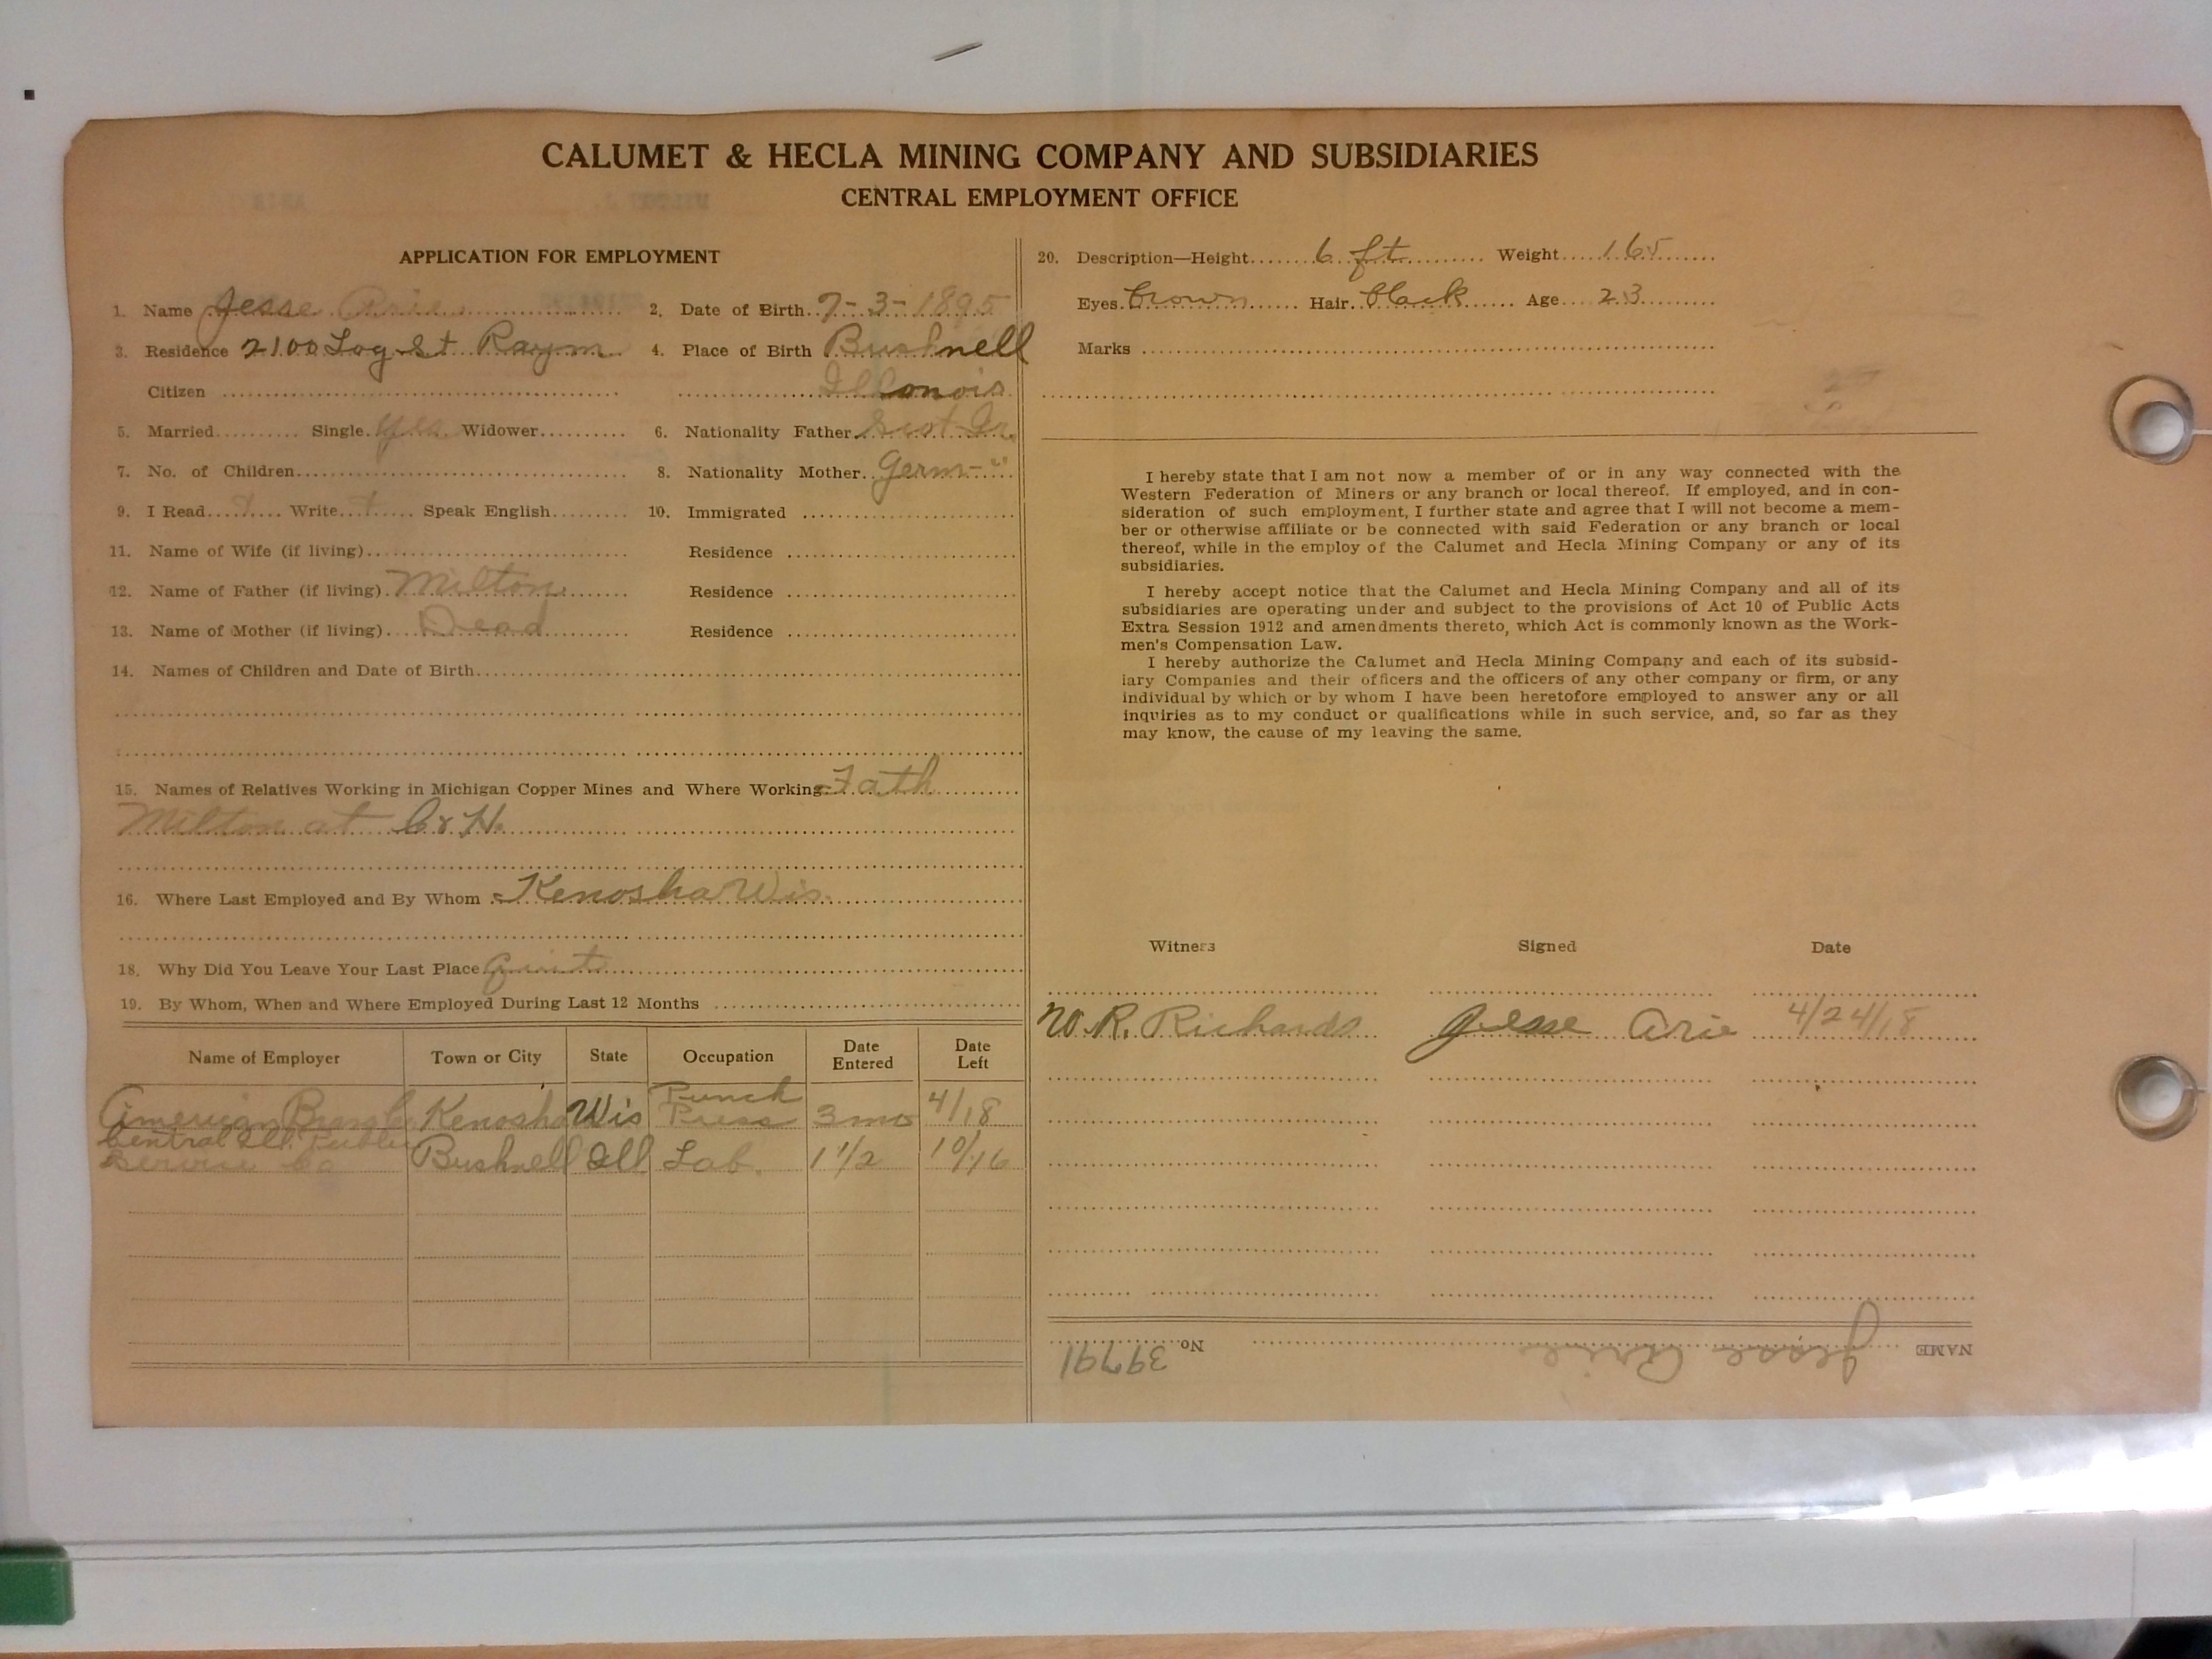 CALUMET & HECLA MINING COMPANY AND SUBSIDIARIES
CENTRAL EMPLOYMENT OFFICE
APPLICATION FOR EMPLOYMENT
1. Name Jesse Arie 2. Date of Birth 7-3-1895
3. Residence 2100 Log St Raym 4. Place of Birth Bushnell
Citizen Illonois
5. Married Single Yes Widower 6. Nationality Father Scot
7. No. of Children 8. Nationality Mother Germ
9. I Read Write Speak English 10. Immigrated
11. Name of Wife (if living) Residence
12. Name of Father (if living) Milton Residence
13. Name of Mother (if living) Dead Residence
14. Names of Children and Date of Birth
15. Names of Relatives Working in Michigan Copper Mines and Where Working Fath
Milton at C & H.
16. Where Last Employed and By Whom Kenosha Wis.
18. Why Did You Leave Your Last Place Quit
19. By Whom, When and Where Employed During Last 12 Months
Name of Employer Town or City State Occupation Date Entered Date Left
American Kenosha Wis Punch Press 3 mo 4/18
Central Ill. Public Service Co Bushnell Ill Lab. 1 1/2 10/16
20. Description—Height 6 ft Weight 165
Eyes brown Hair black Age 23
Marks
I hereby state that I am not now a member of or in any way connected with the
Western Federation of Miners or any branch or local thereof. If employed, and in con-
sideration of such employment, I further state and agree that I will not become a mem-
ber or otherwise affiliate or be connected with said Federation or any branch or local
thereof, while in the employ of the Calumet and Hecla Mining Company or any of its
subsidiaries.
I hereby accept notice that the Calumet and Hecla Mining Company and all of its
subsidiaries are operating under and subject to the provisions of Act 10 of Public Acts
Extra Session 1912 and amendments thereto, which Act is commonly known as the Work-
men's Compensation Law.
I hereby authorize the Calumet and Hecla Mining Company and each of its subsid-
iary Companies and their officers and the officers of any other company or firm, or any
individual by which or by whom I have been heretofore employed to answer any or all
inquiries as to my conduct or qualifications while in such service, and, so far as they
may know, the cause of my leaving the same.
Witness Signed Date
W. R. Richards Jesse Arie 4/24/18
NAME Jesse Arie No. 39791